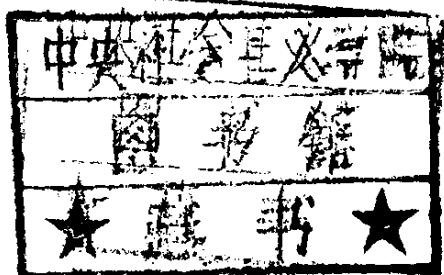 中央社会主义学院
圖书館
★ 藏书 ★